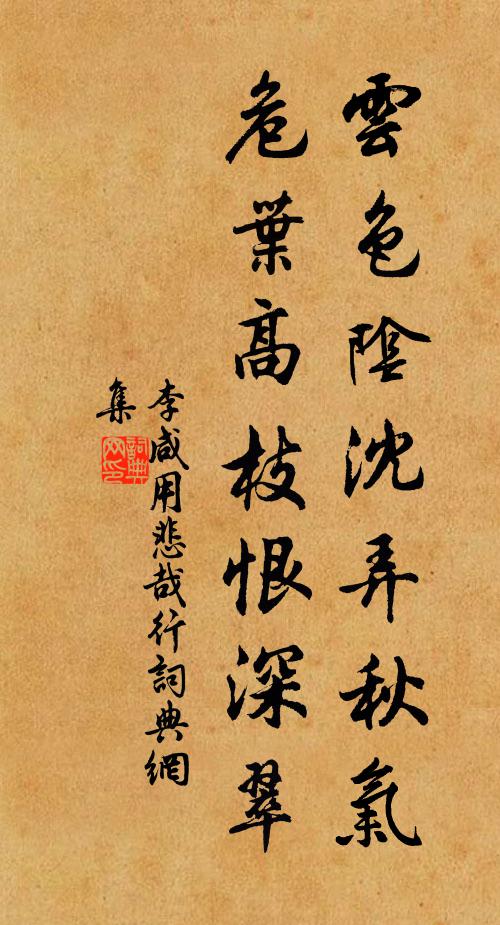 雲色陰沈弄秋氣
危葉高枝恨深翠
李咸用悲哉行詞典網
集
詞典网印